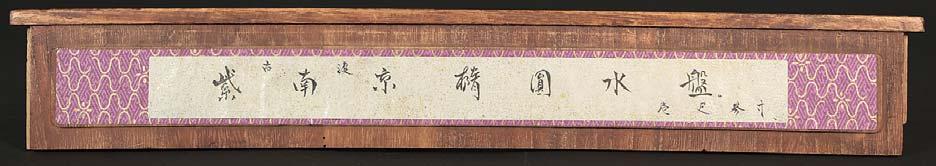 古渡
紫南京楕圓水盤
壱尺参寸